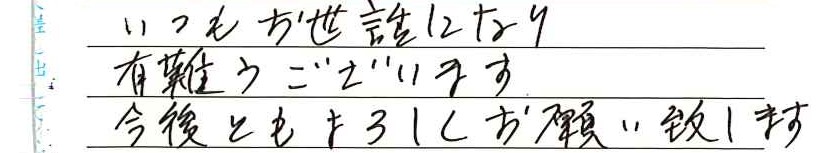 いつもお世話になり
有難うございます
今後ともよろしくお願い致します